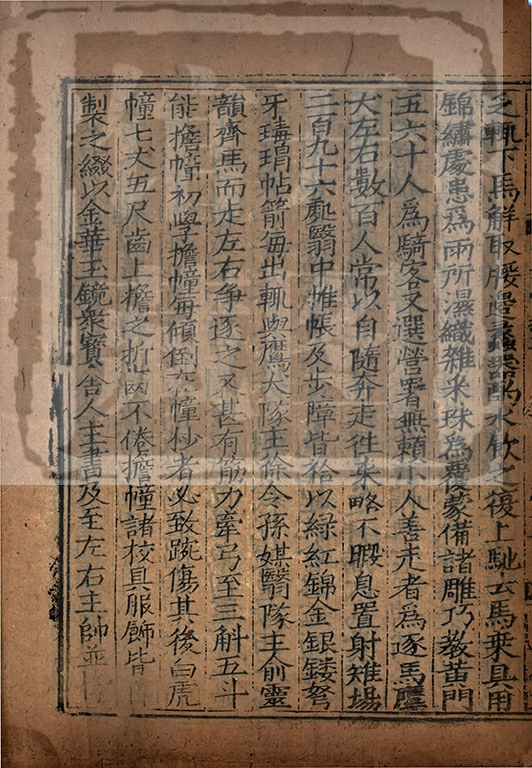 乏輒下馬解取腰邊蠡器酌水飲之復上馳去馬乗具用
錦繡處患為雨所濕織雜采珠為覆蒙備諸雕巧教黄門
五六十人為騎客又選營署無頼小人善走者為逐馬鷹
犬左右數百人常以自隨奔走往来略不暇息置射雉塲
二百九十六處翳中帷帳及步障皆袷以緑紅錦金銀鏤弩
牙瑇瑁帖箭每出輒與鷹犬隊主徐令孫媒翳隊主俞靈
韻齊馬而走左右争逐之又甚有筋力牽弓至三斛五斗
能擔幢初學擔幢每傾倒在幢杪者必致踠傷其後白虎
幢七丈五尺齒上擔之折齒不倦擔幢諸校具服飾皆
製之綴以金華玉鏡衆寳舎人主書及至左右主帥並